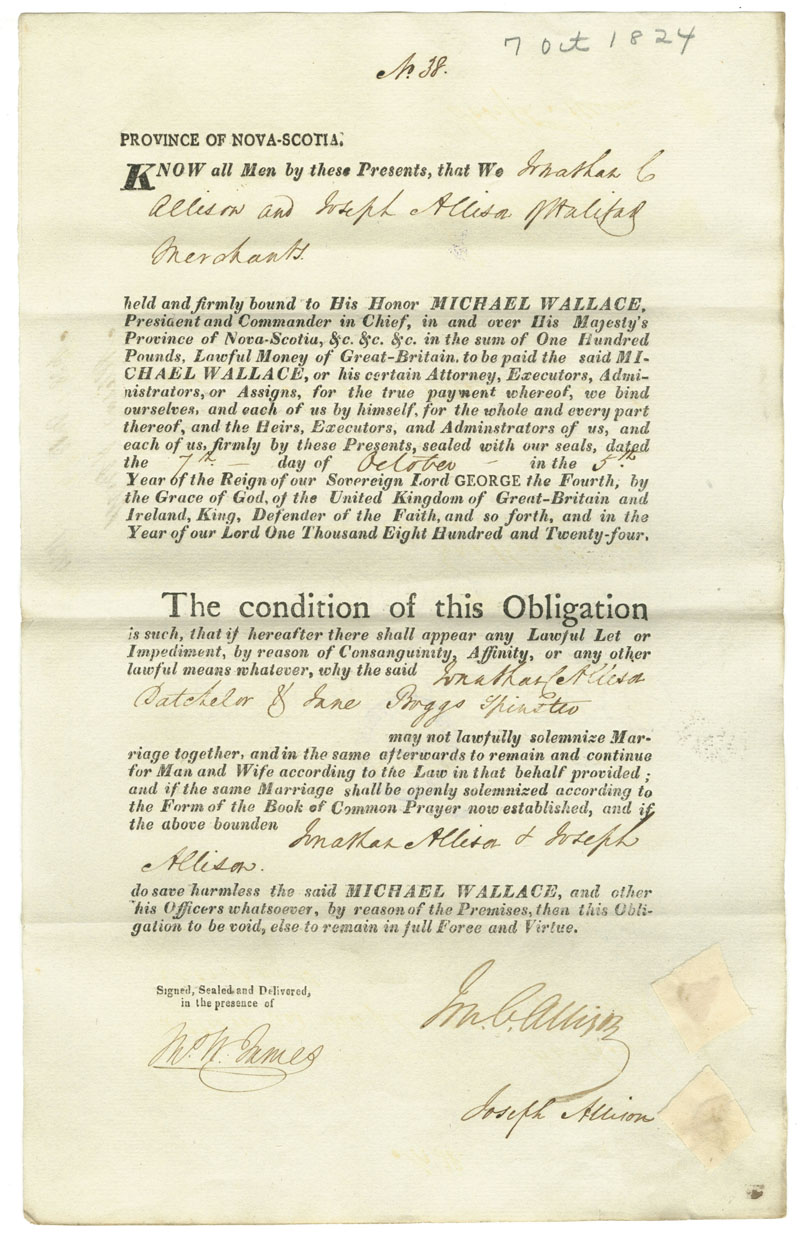 7 Oct 1824
No. 38.
PROVINCE OF NOVA-SCOTIA.
KNOW all Men by these Presents, that We Jonathan C
Allison and Joseph Allison of Halifax
Merchants.
held and firmly bound to His Honor MICHAEL WALLACE,
President and Commander in Chief, in and over His Majesty's
Province of Nova-Scotia, &c. &c. &c. in the sum of One Hundred
Pounds, Lawful Money of Great-Britain, to be paid the said MI-
CHAEL WALLACE, or his certain Attorney, Executors, Admi-
nistrators, or Assigns, for the true payment whereof, we bind
ourselves, and each of us by himself, for the whole and every part
thereof, and the Heirs, Executors, and Adminstrators of us, and
each of us, firmly by these Presents, sealed with our seals, dated
the 7th — day of October — in the 5th
Year of the Reign of our Sovereign Lord GEORGE the Fourth, by
the Grace of God, of the United Kingdom of Great-Britain and
Ireland, King, Defender of the Faith, and so forth, and in the
Year of our Lord One Thousand Eight Hundred and Twenty-four.
The condition of this Obligation
is such, that if hereafter there shall appear any Lawful Let or
Impediment, by reason of Consanguinity, Affinity, or any other
lawful means whatever, why the said Jonathan C Allison
Batchelor & Jane Boggs Spinster
may not lawfully solemnize Mar-
riage together, and in the same afterwards to remain and continue
for Man and Wife according to the Law in that behalf provided;
and if the same Marriage shall be openly solemnized according to
the Form of the Book of Common Prayer now established, and if
the above bounden Jonathan Allison & Joseph
Allison.
do save harmless the said MICHAEL WALLACE, and other
his Officers whatsoever, by reason of the Premises, then this Obli-
gation to be void, else to remain in full Force and Virtue.
Signed, Sealed and Delivered,
in the presence of
Jon. C. Allison
W. James
Joseph Allison